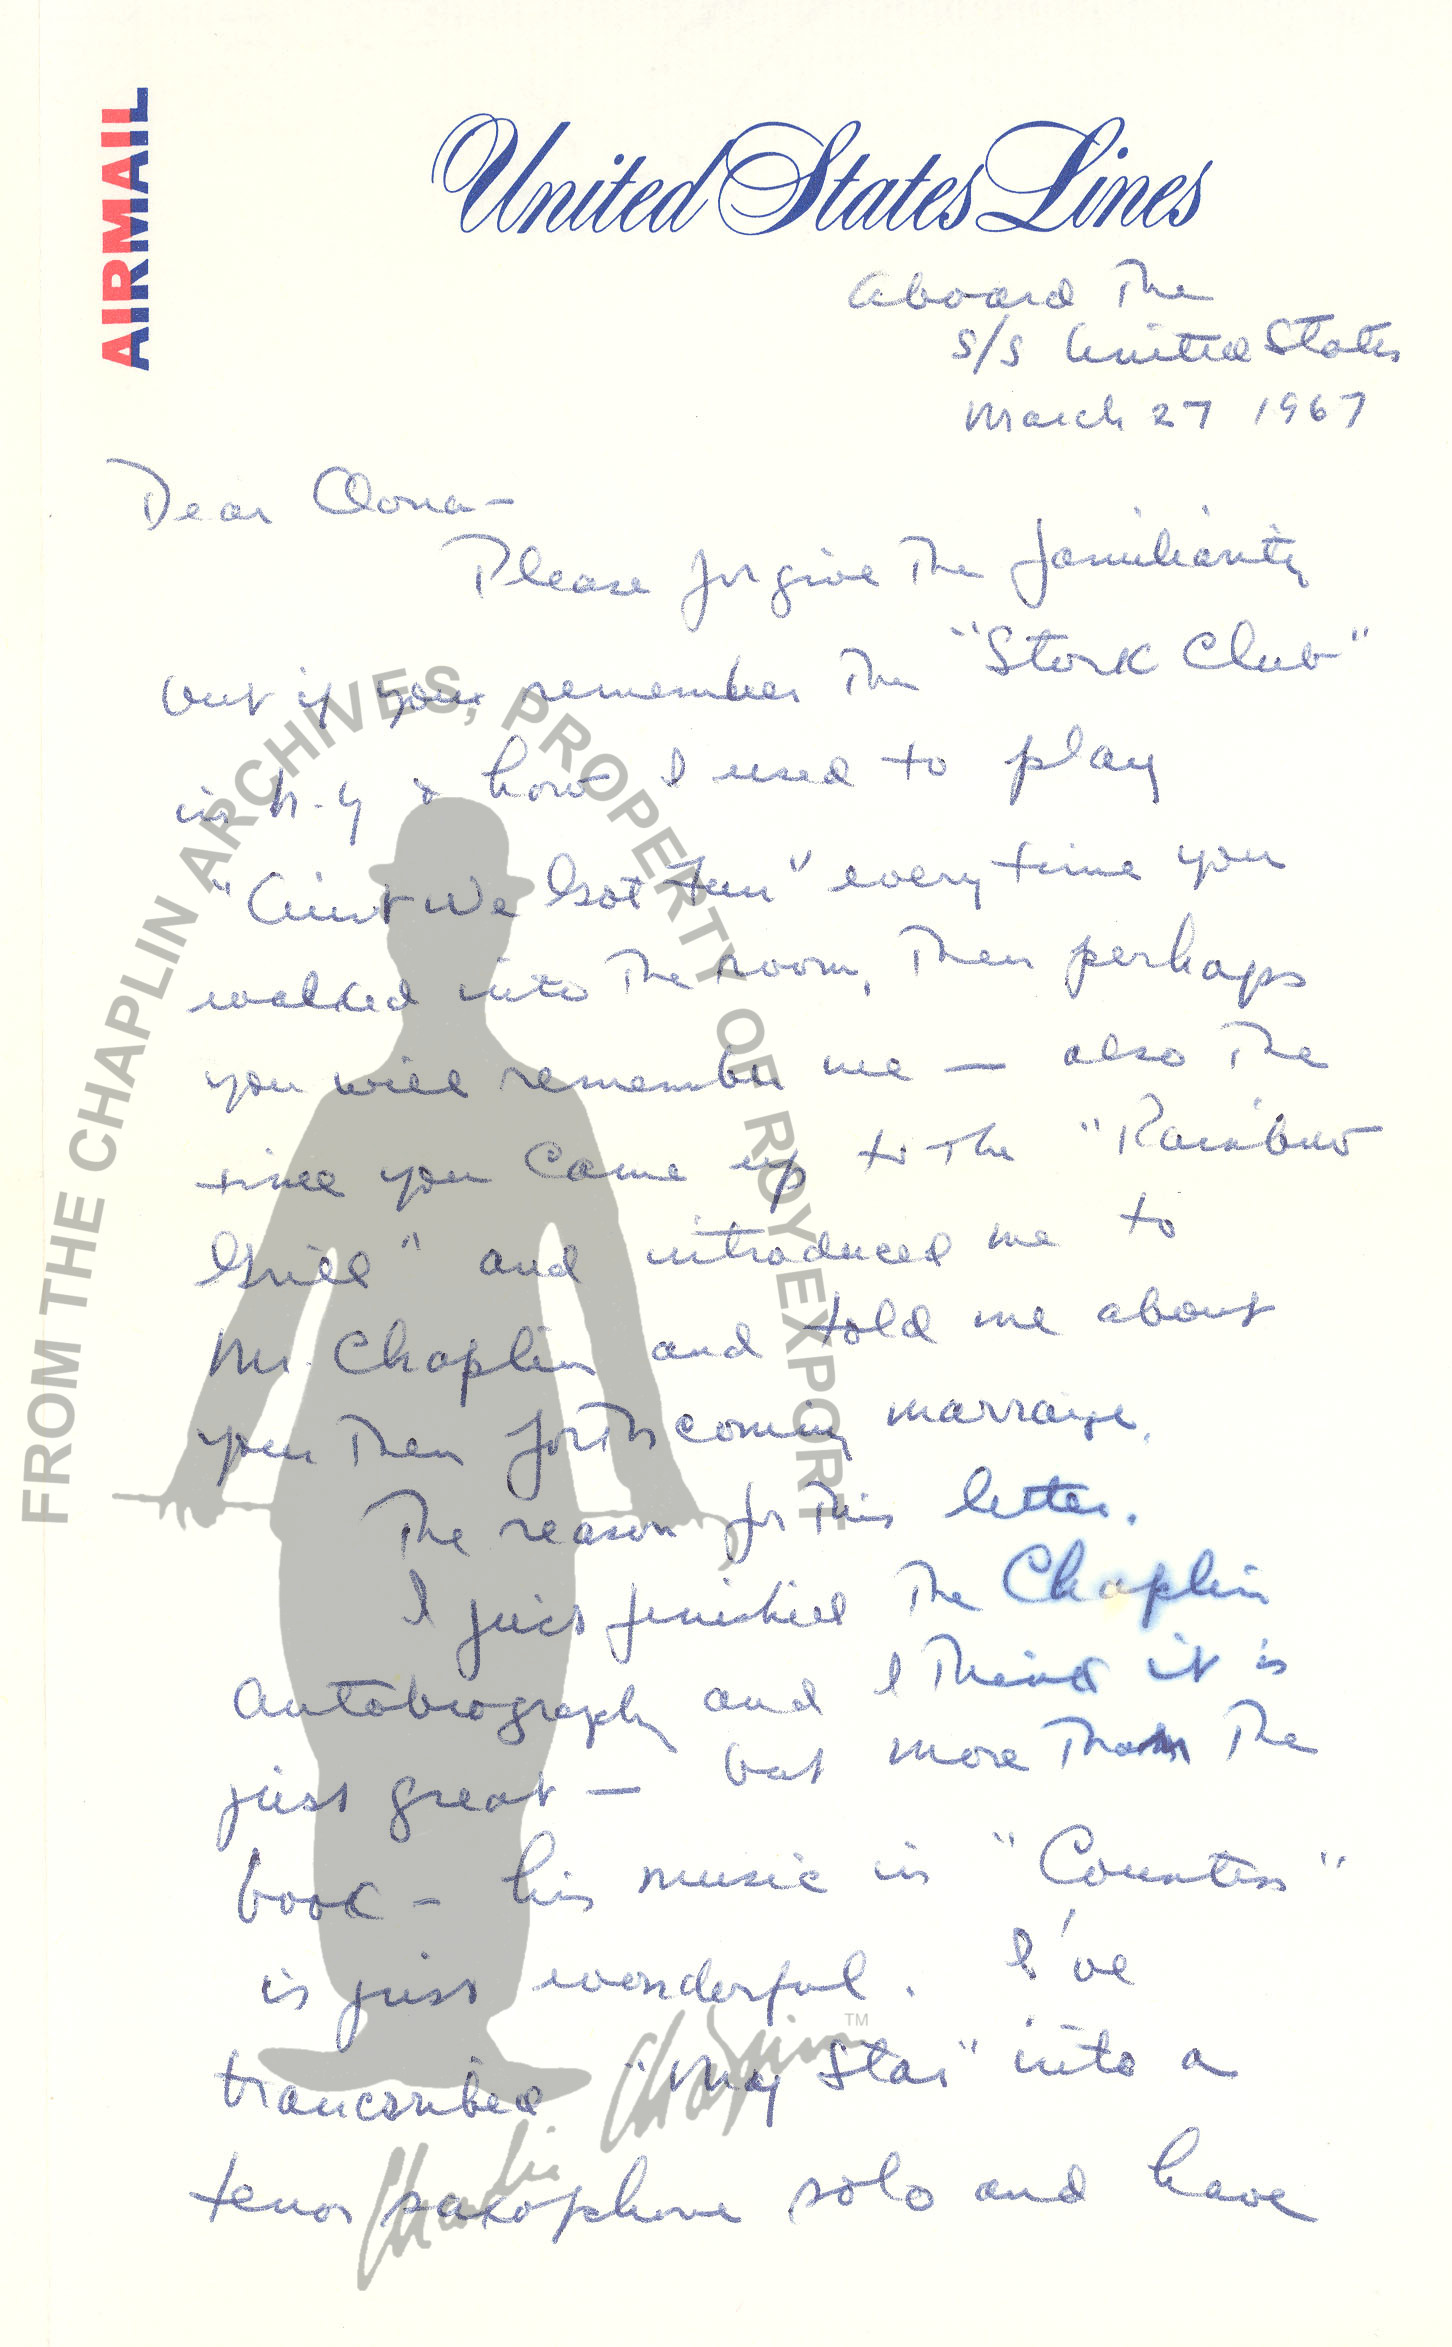 AIRMAIL
United States Lines
Aboard The
S/S United States
March 27 1967
Dear Oona-
Please forgive The familiarity
but if you remember The "Stork Club"
in N-Y & how I used to play
"Ain't We Got Fun" every time you
walked into The room, Then perhaps
you will remember me — also The
time you came up to The "Rainbow
Grill" and introduced me to
Mr. Chaplin and told me about
your Then forthcoming marraige.
The reason for This letter.
I just finished The Chaplin
Autobiography and I Think it is
just great — but more Than The
book - his music in "Countess"
is just wonderful. I've
transcribed "My Star" into a
tenor saxophone solo and have
FROM THE CHAPLIN ARCHIVES, PROPERTY OF ROY EXPORT
Charlie Chaplin™